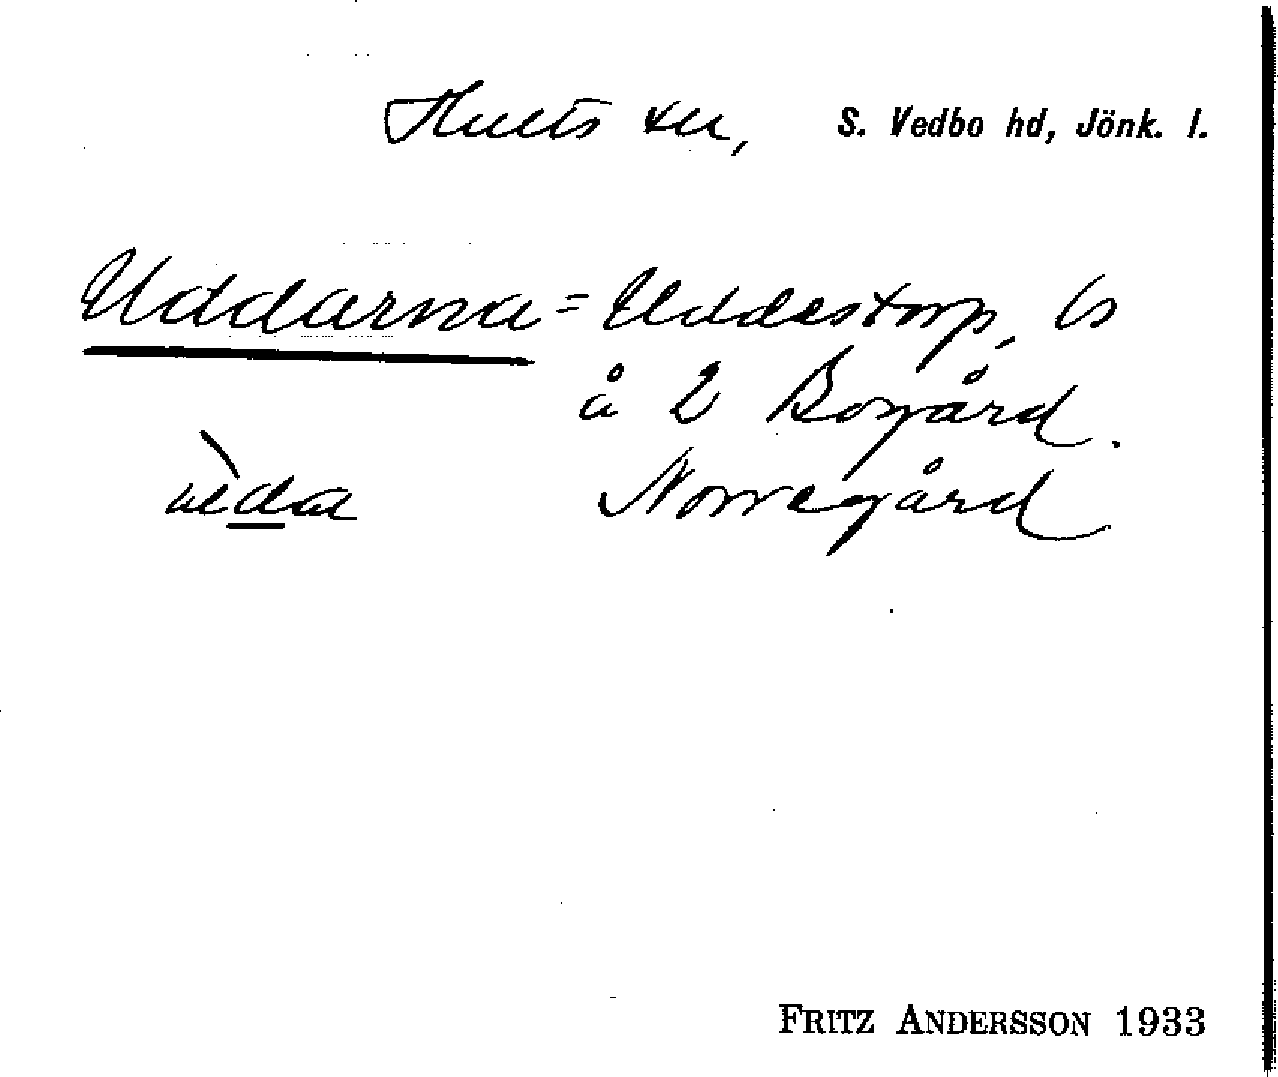 Hults sn, S. Vedbo hd, Jönk. l.
Uddarna = Uddestorp, ls
å 2 Borgård.
Norregård
FRITZ ANDERSSON 1933